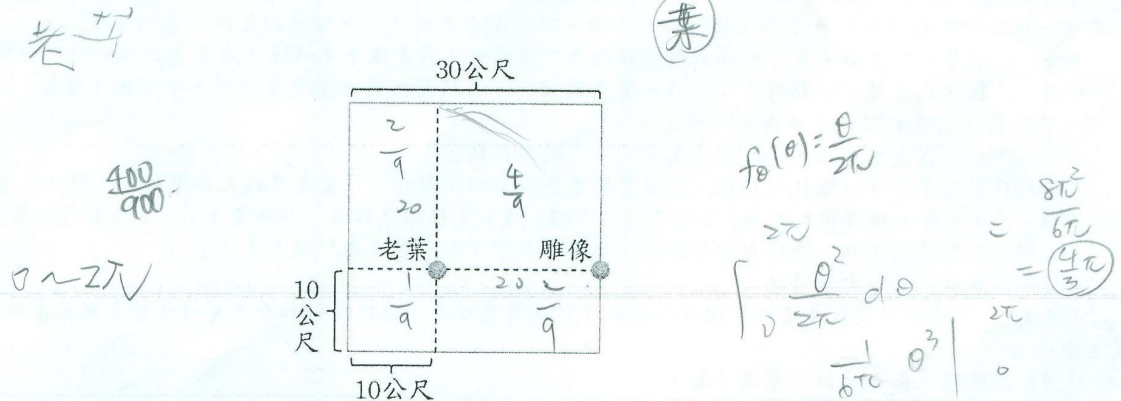 葉
30公尺
2/9
4/9
400/900
20
老葉
雕像
0~2π
10公尺
1/9
20
2/9
10公尺
f_θ(θ)=θ/2π
∫_0^2π θ²/2π dθ
1/6π θ³ |_0^2π
= 8π²/6π
= 4/3 π